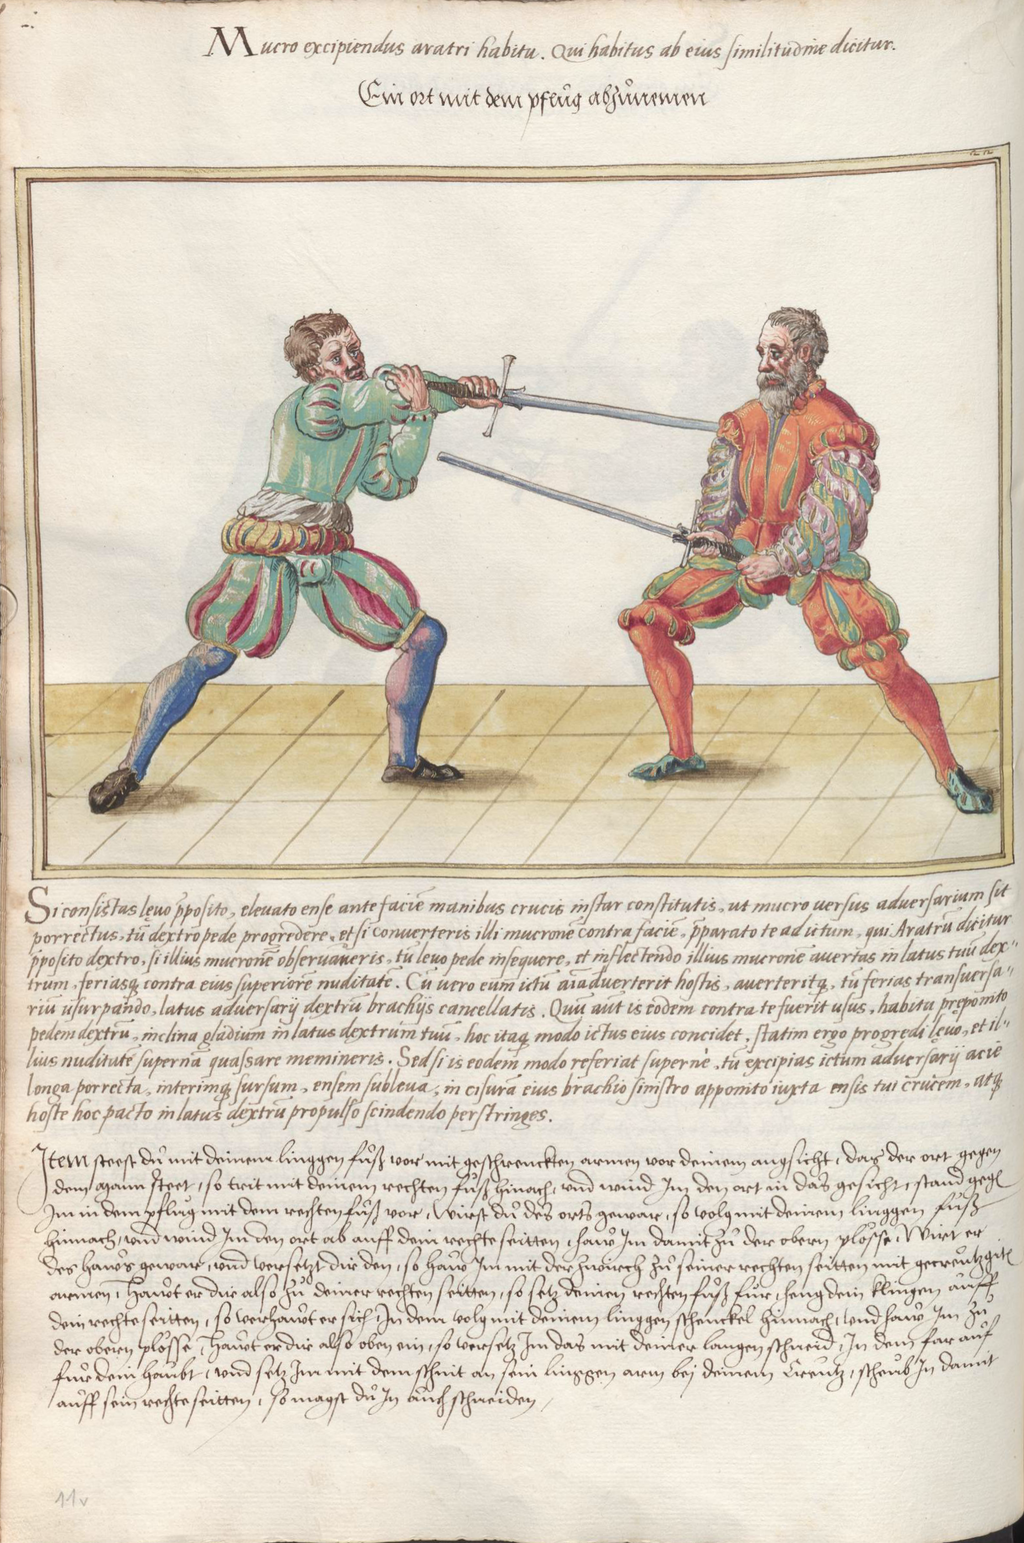 Mucro excipiendus aratri habitu. Qui habitus ab eius similitudine dicitur.
Ein ort mit dem pflůg abzůnemen
Si consistas lęuo p̄posito, eleuato ense ante faciē manibus crucis instar constitutis, ut mucro uersus aduersarium sit
porrectus, tū dextro pede progredere, et si conuerteris illi mucronē contra faciē, p̄parato te ad ictum, qui Aratrū dicitur
p̄posito dextro, si illius mucronē obseruaueris, tū leuo pede insequere, et inflectendo illius mucronē auertas in latus tuū dex-
trum, feriasq contra eius superiorē nuditatē. Cū uero eum ictū aīaduerterit hostis, auerteritq, tū ferias transuersa-
riū usurpando, latus aduersarij dextrū brachijs cancellatis. Quū aut is eodem contra te fuerit usus, habitu preponito
pedem dextrū, inclina gladium in latus dextrum tuū, hoc itaq modo ictus eius concidet, statim ergo progredi lęuo, et il-
lius nuditatē supernā quassare memineris. Sed si is eodem modo referiat superne, tū excipias ictum aduersarij acie
longa porrecta, interimq sursum, ensem subleua, incisurā eius brachio sinistro apponito iuxta ensis tui crucem, atq
hoste hoc pacto in latus dextrū propulso scindendo perstringes.
Item steest dů mit deinem linggen fůß vor mit geschrenckten armen vor deinem angsicht, das der ort gegen
dem mann steet, so trit mit deinem rechten fůß hinach, vnd wind Im den ort in das gesicht, stand gegē
Im in dem pflůg mit dem rechten fůß vor, Würst dů des orts gewar, so volg mit deinem linggen fůß
hinnach, vnd wind Im den ort ab auff dein rechte seitten, haw Im damit zů der obern plösse, Wirt er
des haws gewar, vnd versetzt dir den, so haw Im mit der zwirch zů seiner rechten seitten mit gecreützgitē
armen, Hawt er dir also zů deiner rechten seitten, so setz deinen rechten fůß für, heng dein klingen auff
dein rechte seitten, so verhawt er sich, In dem volg mit deinem linggen schenckel hinnach, vnd haw Im zů
der obern plösse, Hawt er dir also oben ein, so versetz Im das mit deiner langen schneid, In dem far auf
für dein haubt, vnd setz Im mit dem schnit an sein linggen arm bei deinem Creütz, scheub In damit
auff sein rechte seitten, so magst dů In auch schneiden,
11v